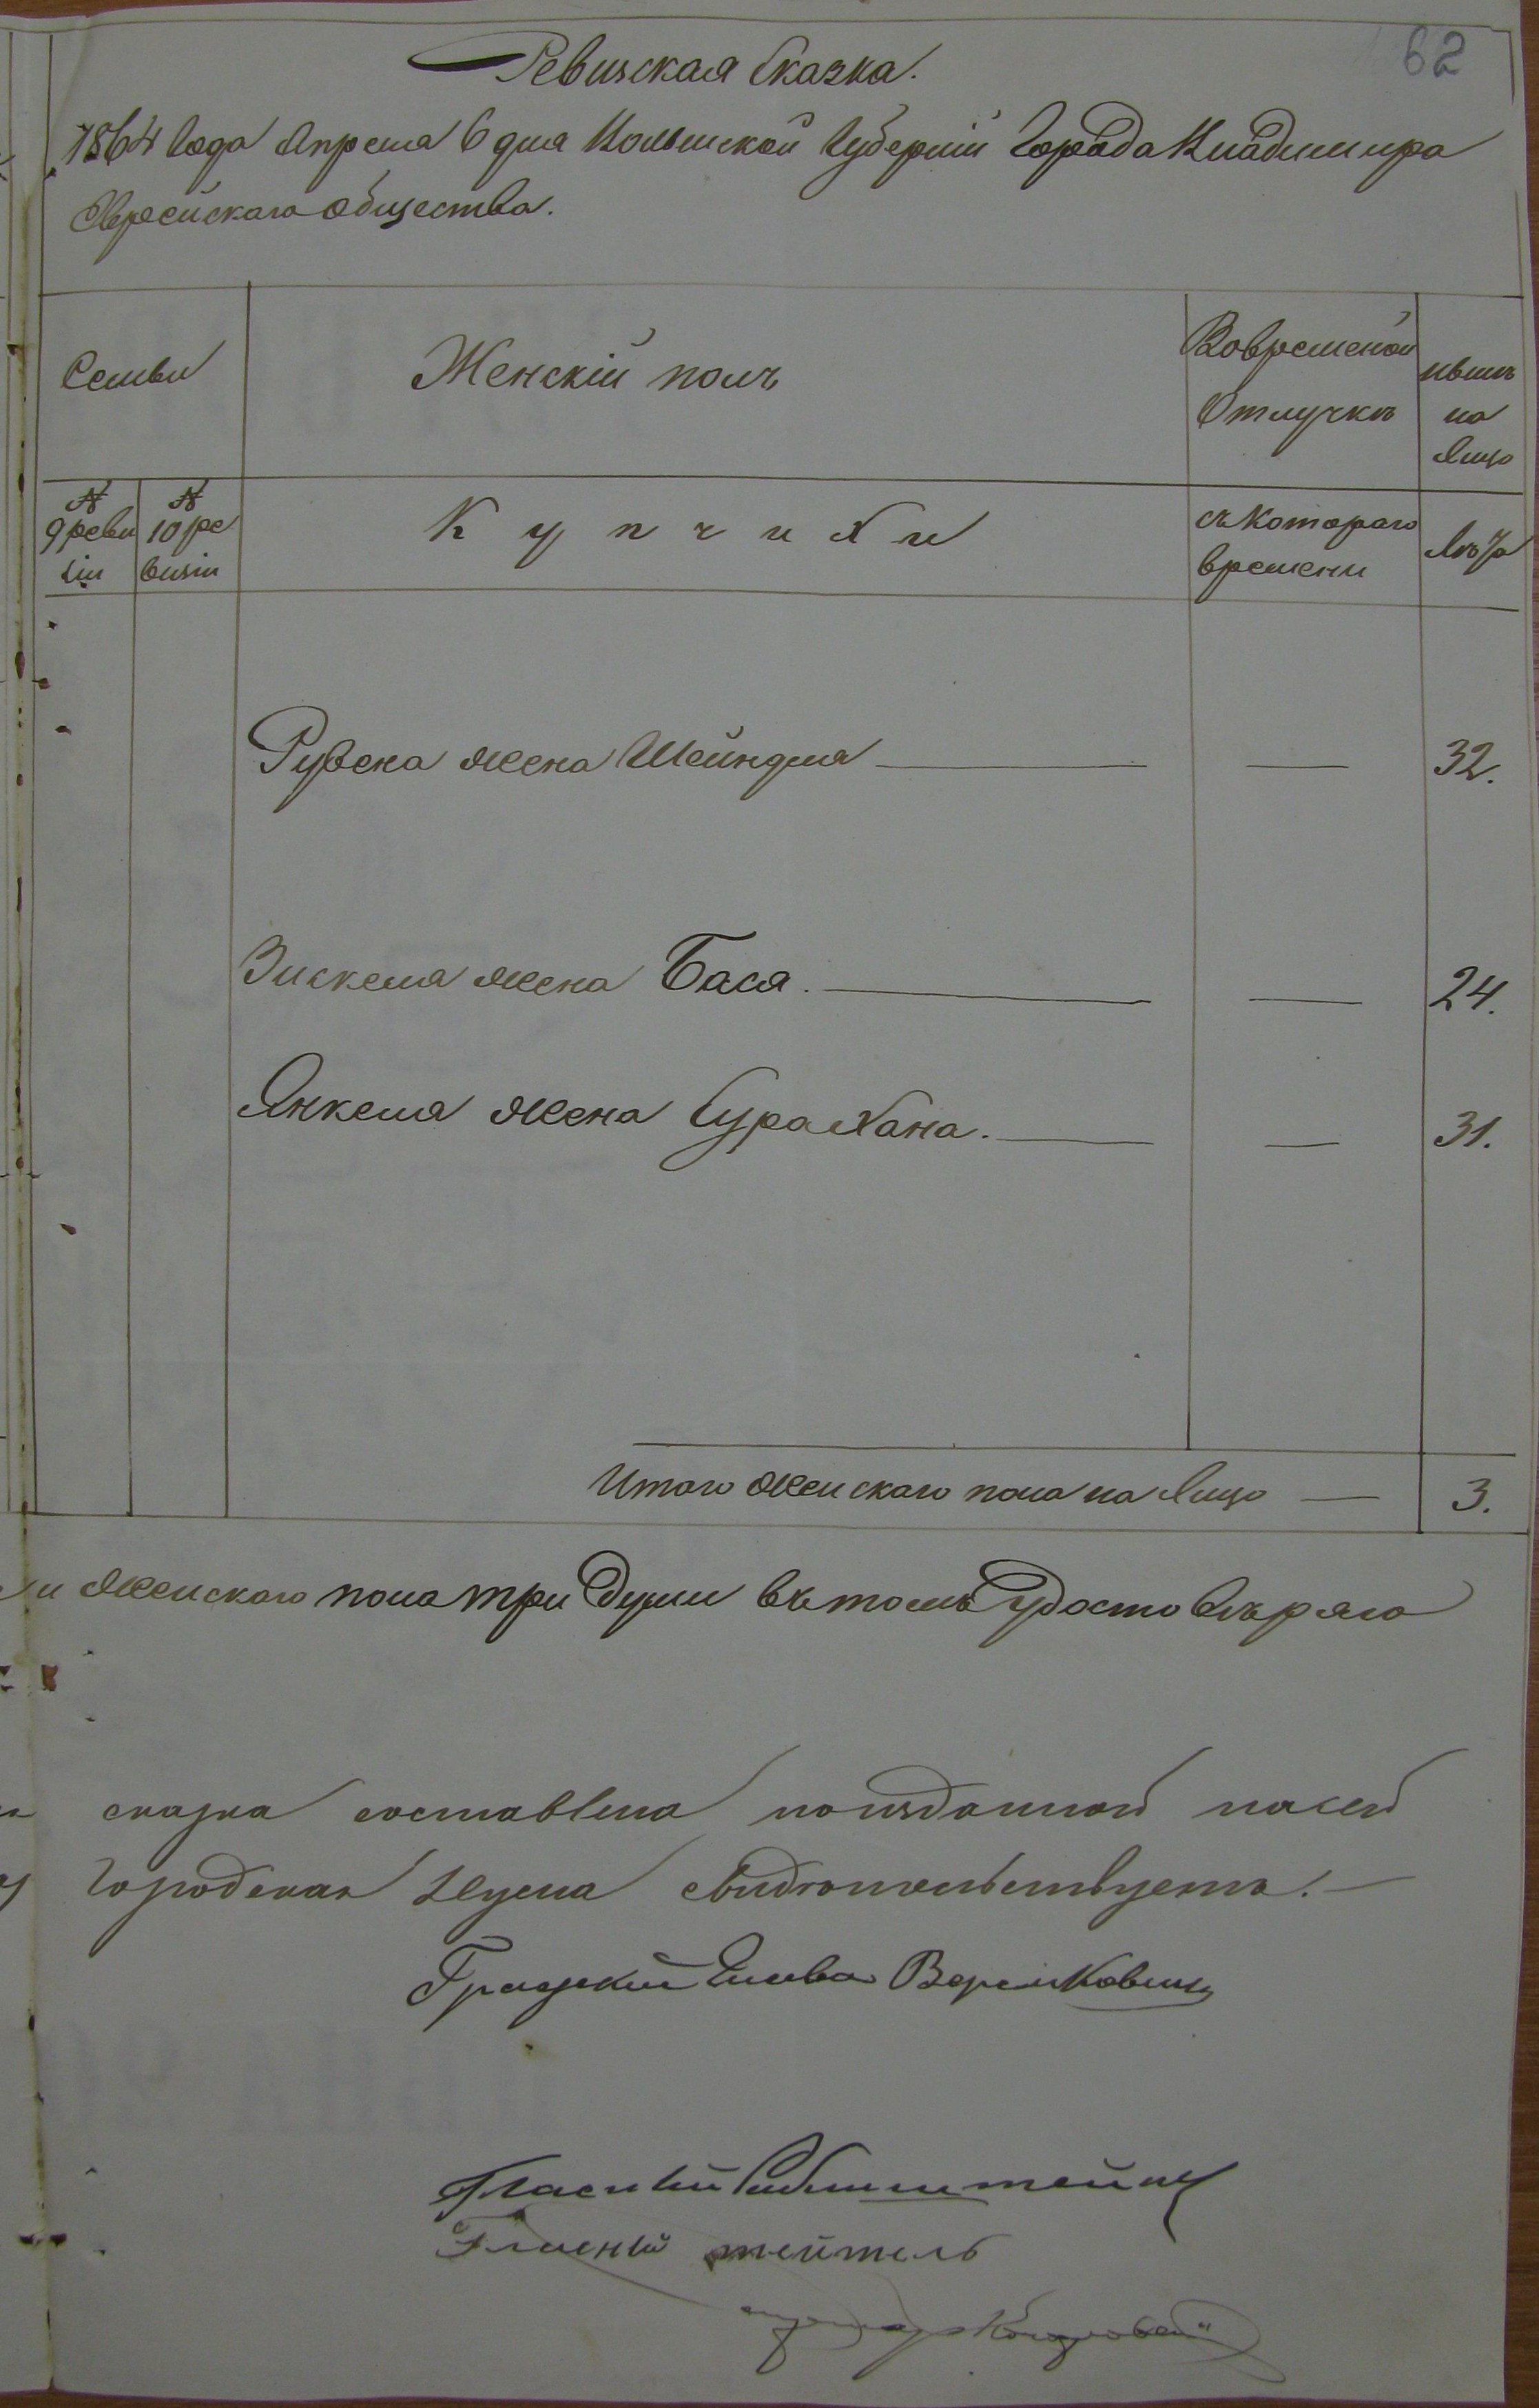 62
Ревизская Сказка.
1864 Года Апреля 6 дня Волынской Губернии Города Владимира
Еврейскаго общества.
Семьи
Женскій полъ
Вовременой
Отлучкъ
нынъ
на
Лицо
№
9 реви
зіи
№
10 ре
визіи
Купчихи
съ котораго
времени
Лѣта
Рувена жена Шейндля — — 32.
Зискеля жена Бася. — — 24.
Янкеля жена Сура Хана. — — 31.
Итого женскаго пола на Лицо — 3.
и женскаго пола три души въ томъ удостовѣряю
сказка составлена поизданной насей
Городская Дума свидѣтельствуетъ. —
Градский Глава
Гласный
Гласный тейтель